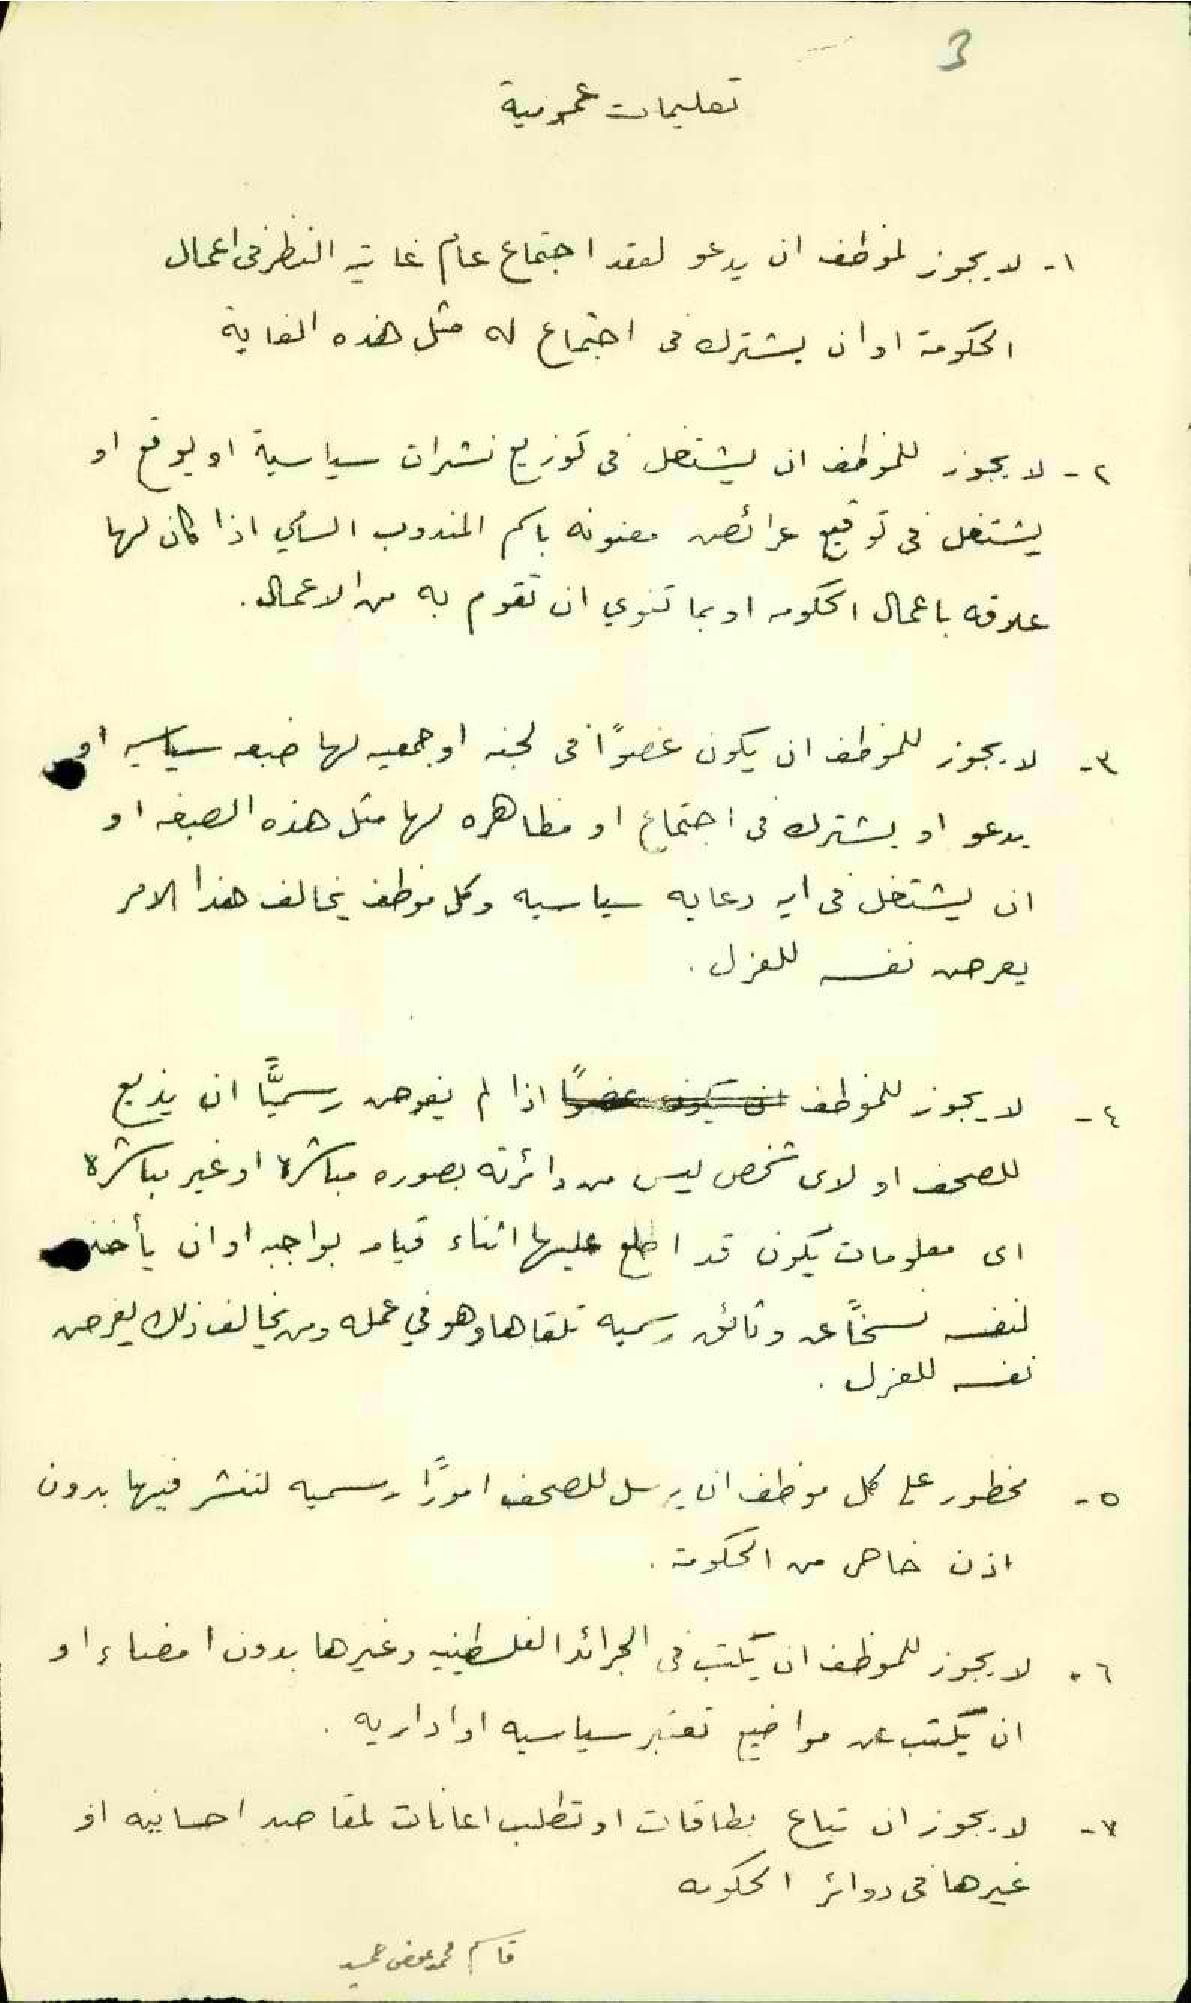 3
تعليمات عمومية
١- لا يجوز لموظف ان يدعو لعقد اجتماع عام غايته النظر في اعمال
الحكومة او ان يشترك في اجتماع له مثل هذه الغاية
٢- لا يجوز للموظف ان يشتغل في توزيع نشرات سياسية او يوقع او
يشتغل في توقيع عرائض معنونه باسم المندوب السامي اذا كان لها
علاقه باعمال الحكومه او بما تنوي ان تقوم به من الاعمال.
٣- لا يجوز للموظف ان يكون عضوًا في لجنه او جمعيه لها صبغه سياسيه او
يدعو او يشترك في اجتماع او مظاهره لها مثل هذه الصبغه او
ان يشتغل في ايه دعايه سياسيه وكل موظف يخالف هذا الامر
يعرض نفسه للعزل.
٤- لا يجوز للموظف ان يكون عضوًا اذا لم يفوض رسميًّا ان يذيع
للصحف او لاى شخص ليس من دائرته بصوره مباشرة او غير مباشرة
اى معلومات يكون قد اطلع عليها اثناء قيامه بواجبه او ان يأخذ
لنفسه نسخًا عن وثائق رسميه تلقاها وهو في عمله ومن يخالف ذلك يعرض
نفسه للعزل.
٥- محظور على كل موظف ان يرسل للصحف امورًا رسميه لتنشر فيها بدون
اذن خاص من الحكومة.
٦- لا يجوز للموظف ان يكتب في الجرائد الفلسطينيه وغيرها بدون امضاء او
ان يكتب عن مواضيع تعتبر سياسيه او اداريه.
٧- لا يجوز ان تباع بطاقات او تطلب اعانات لمقاصد احسانيه او
غيرها في دوائر الحكومه
قاسم محمد عوض حميد